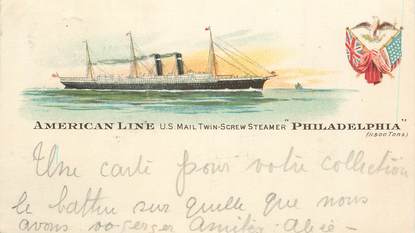 AMERICAN LINE U.S. MAIL TWIN-SCREW STEAMER "PHILADELPHIA"
(11800 TONS)
Une carte pour votre collection
le battin sur quelle que nous
avons Amitiés